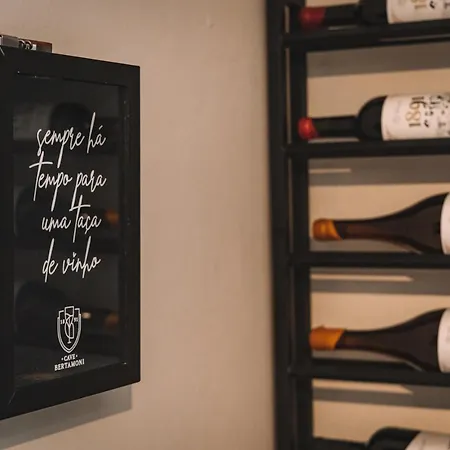 sempre há
tempo para
uma taça
de vinho
18 91
• CAVE •
BERTAMONI
1891